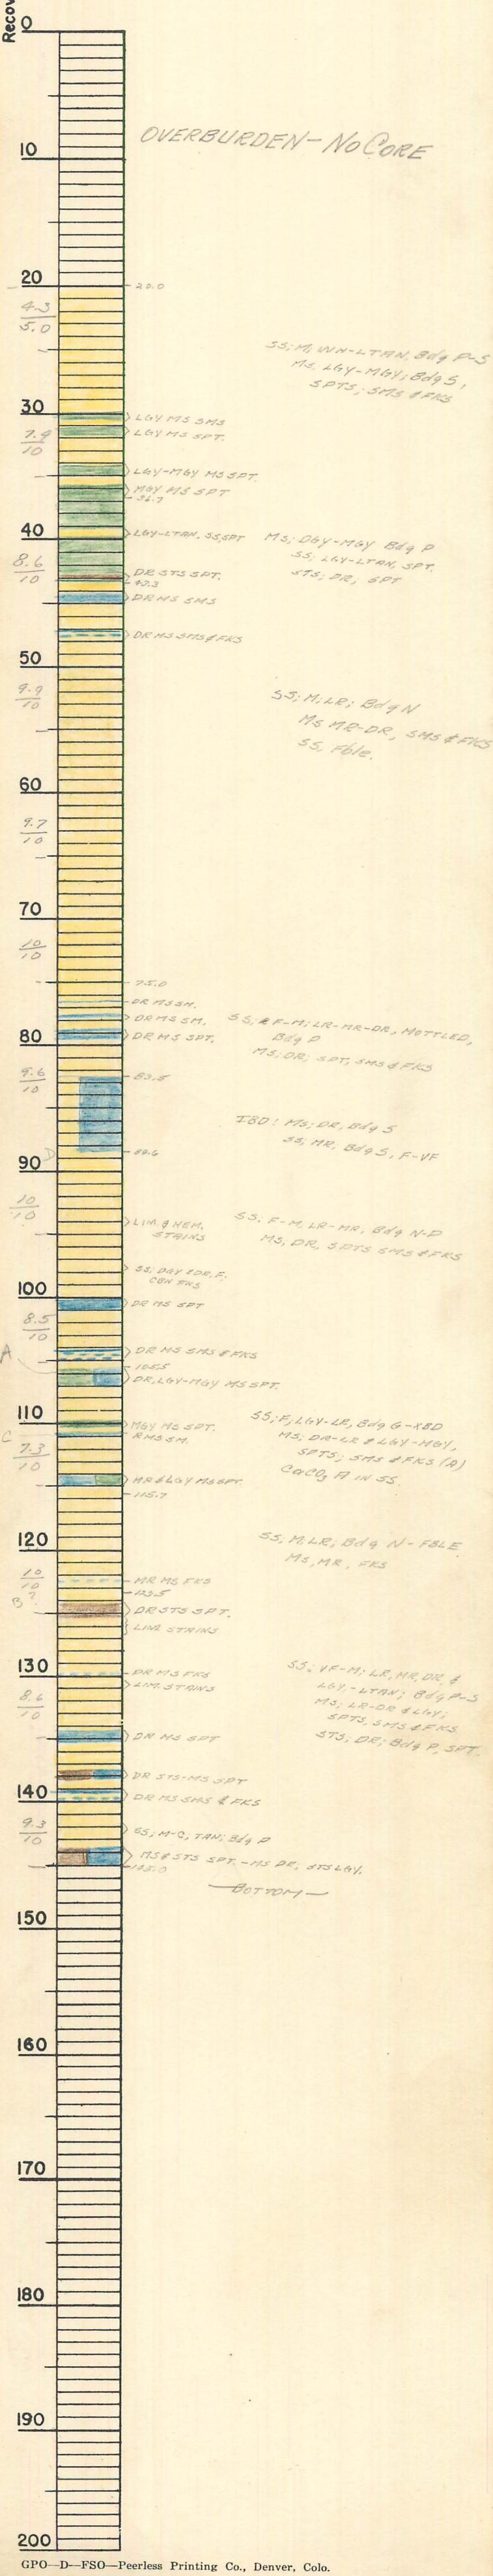 Recov
0
OVERBURDEN-NO CORE
10
20
20.0
4.3
5.0
SS; M, WH-LTAN, Bdg P-S
MS, LGY-MGY; Bdg S,
SPTS; SMS & FKS
30
LGY MS SMS
LGY MS SPT.
7.9
10
LGY-MGY MS SPT.
MGY MS SPT
36.7
40
LGY-LTAN, SS, SPT
MS; DGY-MGY Bdg P
SS; LGY-LTAN, SPT.
STS; DR, SPT
8.6
10
DR STS SPT.
43.3
DR MS SMS
DR MS SMS & FKS
50
9.9
10
SS; M; LR; Bdg N
MS MR-DR, SMS & FKS
SS, Fble.
60
9.7
10
70
10
10
75.0
DR MS SM.
DR MS SM.
SS; F-M; LR-MR-DR, MOTTLED,
Bdg P
MS; DR; SPT, SMS & FKS
80
DR MS SPT.
9.6
10
83.5
IBD: MS; DR, Bdg S
SS, MR, Bdg S, F-VF
D
90
10
10
LIM. & HEM.
STAINS
SS; F-M, LR-MR; Bdg N-P
MS, DR, SPTS SMS & FKS
SS; DGY & DR, F;
CBN FKS
100
DR MS SPT
8.5
10
A
DR MS SMS & FKS
105.5
DR, LGY-MGY MS SPT.
110
MGY MS SPT.
RMS SM.
SS; F; LGY-LR, Bdg G-XBD
MS; DR-LR & LGY-MGY,
SPTS; SMS & FKS (A)
CaCO3 A IN SS.
C
7.3
10
MR & LGY MS SPT.
115.7
120
SS; M; LR; Bdg N-FBLE.
MS, MR, FKS
10
10
MR MS FKS
123.5
B?
DR STS SPT.
LIM. STAINS
130
DR MS FKS
LIM. STAINS
SS; VF-M; LR, MR, DR, &
LGY,-LTAN; Bdg P-S
MS; LR-DR & LGY;
SPTS, SMS & FKS
STS; DR; Bdg P, SPT.
8.6
10
DR MS SPT
DR STS-MS SPT
140
DR MS SMS & FKS
9.3
10
SS; M-C, TAN; Bdg P
MS & STS SPT.-MS DR, STS LGY.
145.0
BOTTOM
150
160
170
180
190
200
GPO—D—FSO—Peerless Printing Co., Denver, Colo.